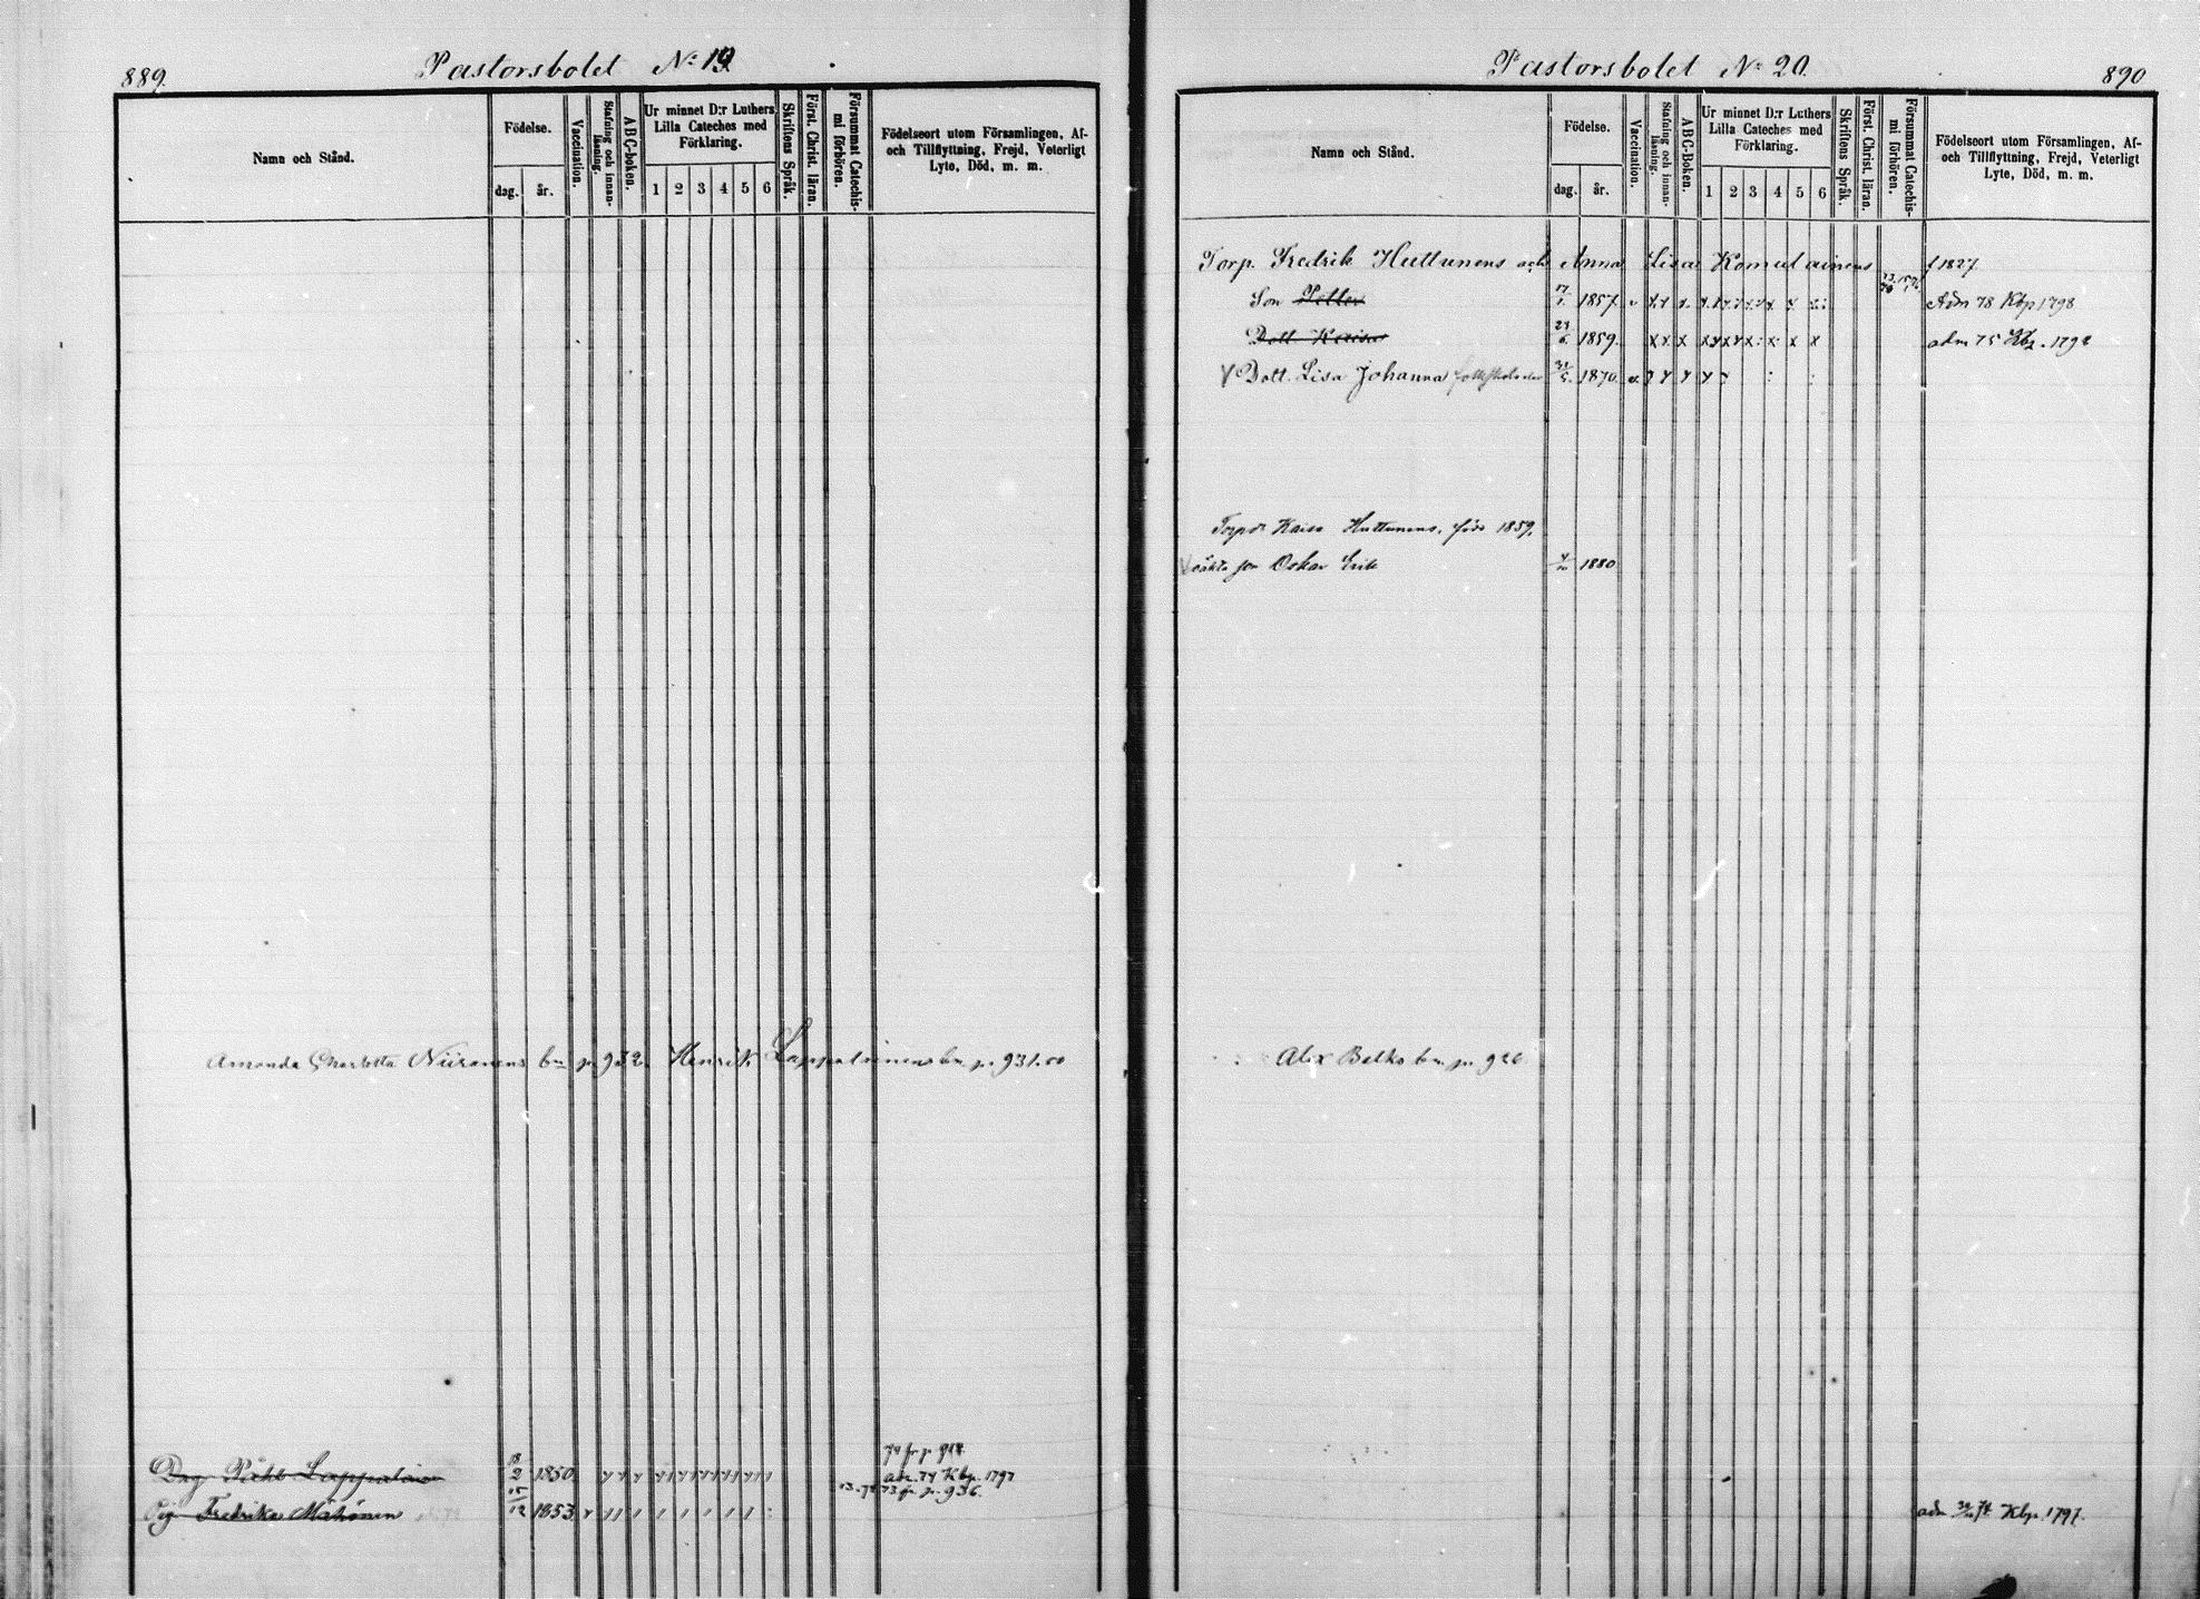 889.
Pastorsbolet No 19
Namn och Stånd.
Födelse.
dag.
år.
Vaccination.
Stafning och innan-
läsning.
ABC-boken.
Ur minnet D:r Luthers
Lilla Cateches med
Förklaring.
1 2 3 4 5 6
Skriftens Språk.
Först. Christ. läran.
Försummat Catechis-
mi förhören.
Födelseort utom Församlingen, Af-
och Tillflyttning, Frejd, Veterligt
Lyte, Död, m. m.
Amanda Charlotta Niiranens bn p. 932. Henrik Lappalainens bn p. 931.
74 fr. p. 918
Drg Påhl Lappalain 18/2 1850 adm. 74 Kbp. 1797
73 fr. p. 936.
Pig. Fredrika Mähönen 15/12 1853
Pastorsbolet No 20.
890
Namn och Stånd.
Födelse.
dag.
år.
Vaccination.
Stafning och innan-
läsning.
ABC-Boken.
Ur minnet D:r Luthers
Lilla Cateches med
Förklaring.
1 2 3 4 5 6
Skriftens Språk.
Först. Christ. läran.
Försummat Catechis-
mi förhören.
Födelseort utom Församlingen, Af-
och Tillflyttning, Frejd, Veterligt
Lyte, Död, m. m.
Torp. Fredrik Huttunens och Anna Lisa Komulainens f 1827
Son Petter 17/1. 1857. Adm 78 Kbp 1798
Dott Kaisa 1859. adm 75 Kbp. 1792
Dott. Lisa Johanna 1870.
Torpdr Kaisa Huttunens, född 1859.
oäkta son Oskar Erik 1880
Alex Belks bn. p. 926
adm 74 Kbp. 1797.